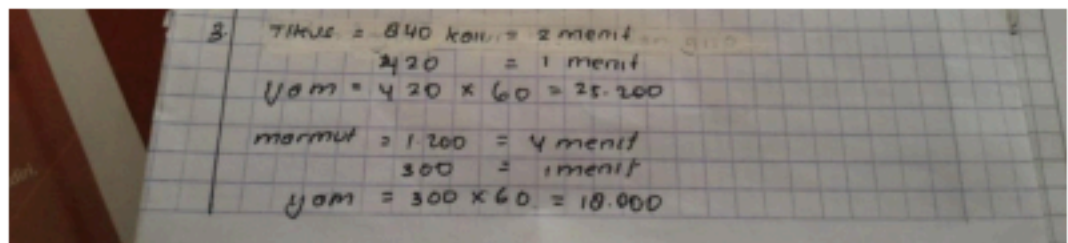 3. Tikus = 840 kali = 2 menit
420 = 1 menit
Yam = 420 x 60 = 25.200
marmut = 1.200 = 4 menit
300 = 1 menit
yam = 300 x 60 = 18.000